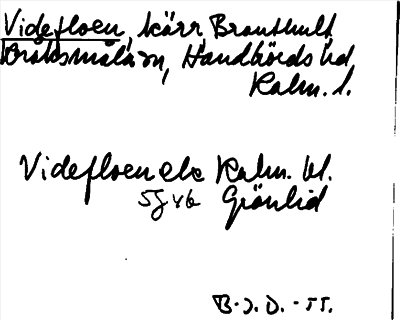 Videfloen, kärr, Branthult,
Bråtsmålarn, Handbörds hd,
Kalm. l.
Videfloen ek Kalm. bl.
5g Grönlid
B.J.D. - 55.